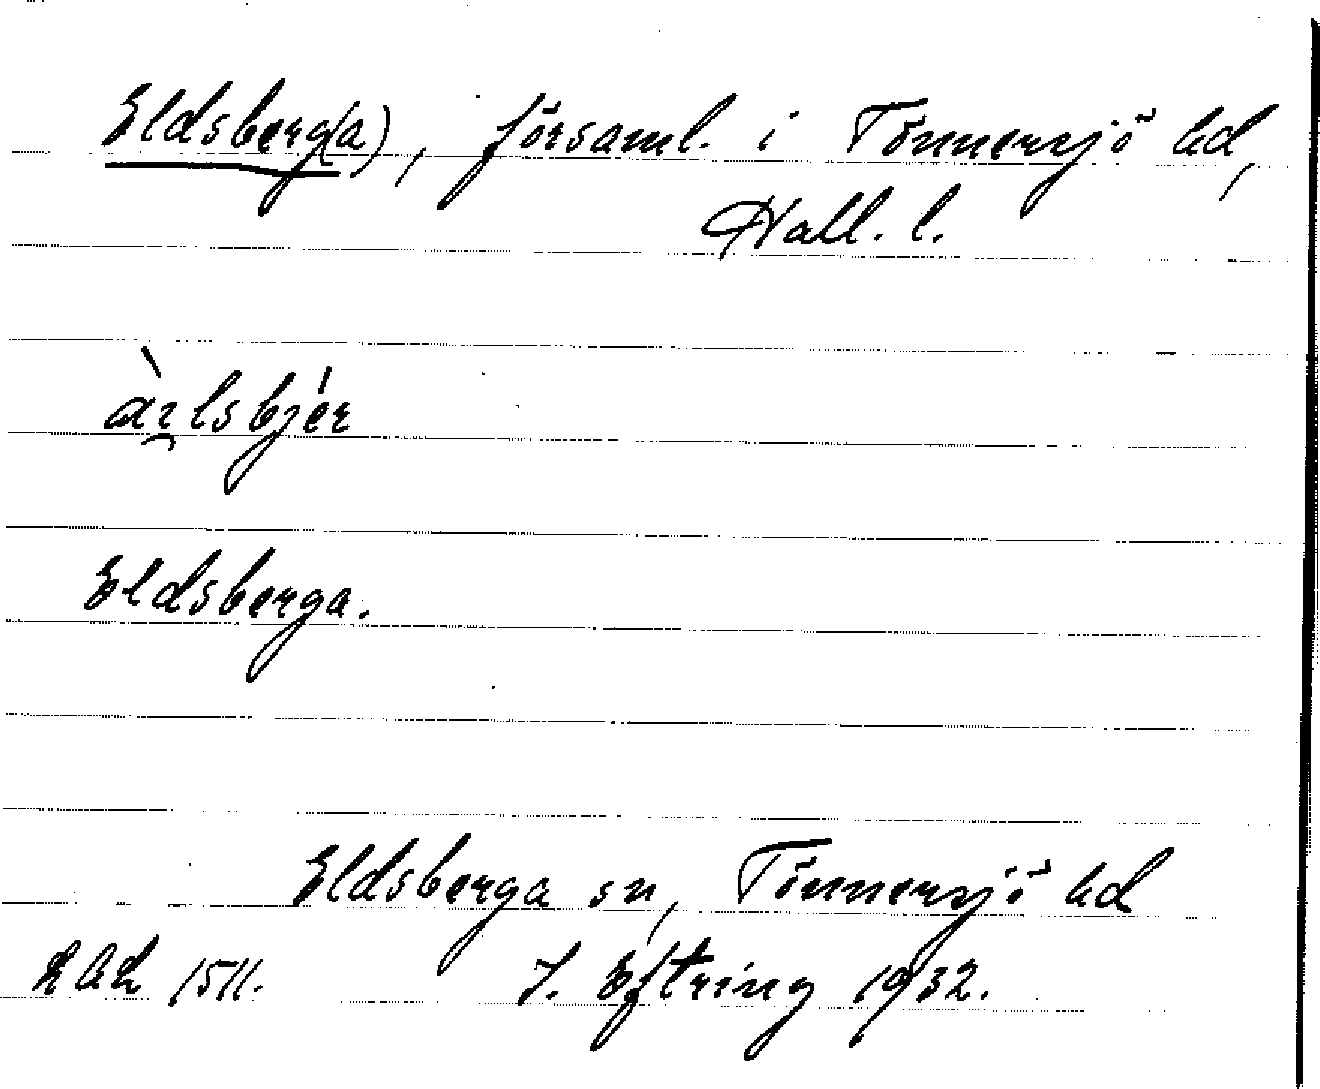 Eldsberg(a), församl. i Tönnersjö hd,
Hall. l.
àrlsbjér
Eldsberga.
Eldsberga sn, Tönnersjö hd
LAL 1511. J. Eftring 1932.